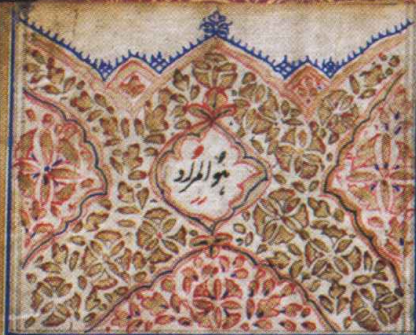 ہُوَالمُراد